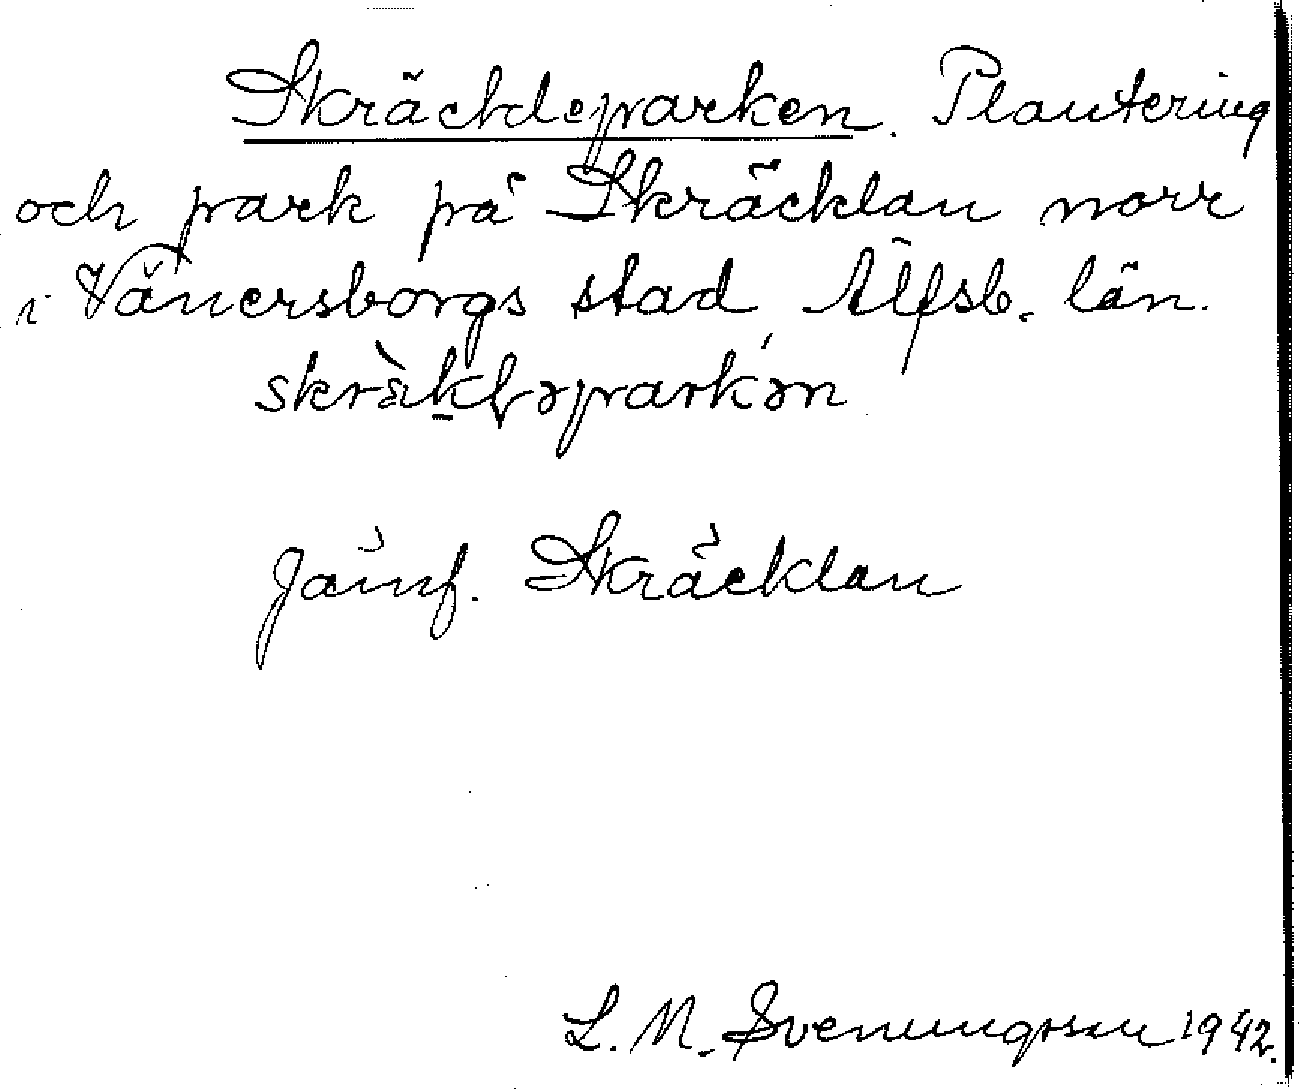 Skräckleparken. Plantering
och park på Skräcklan norr
i Vänersborgs stad, Älfsb. län.
skràkləparkən
Jämf. Skräcklan
L. M. Svenungsson 1942.